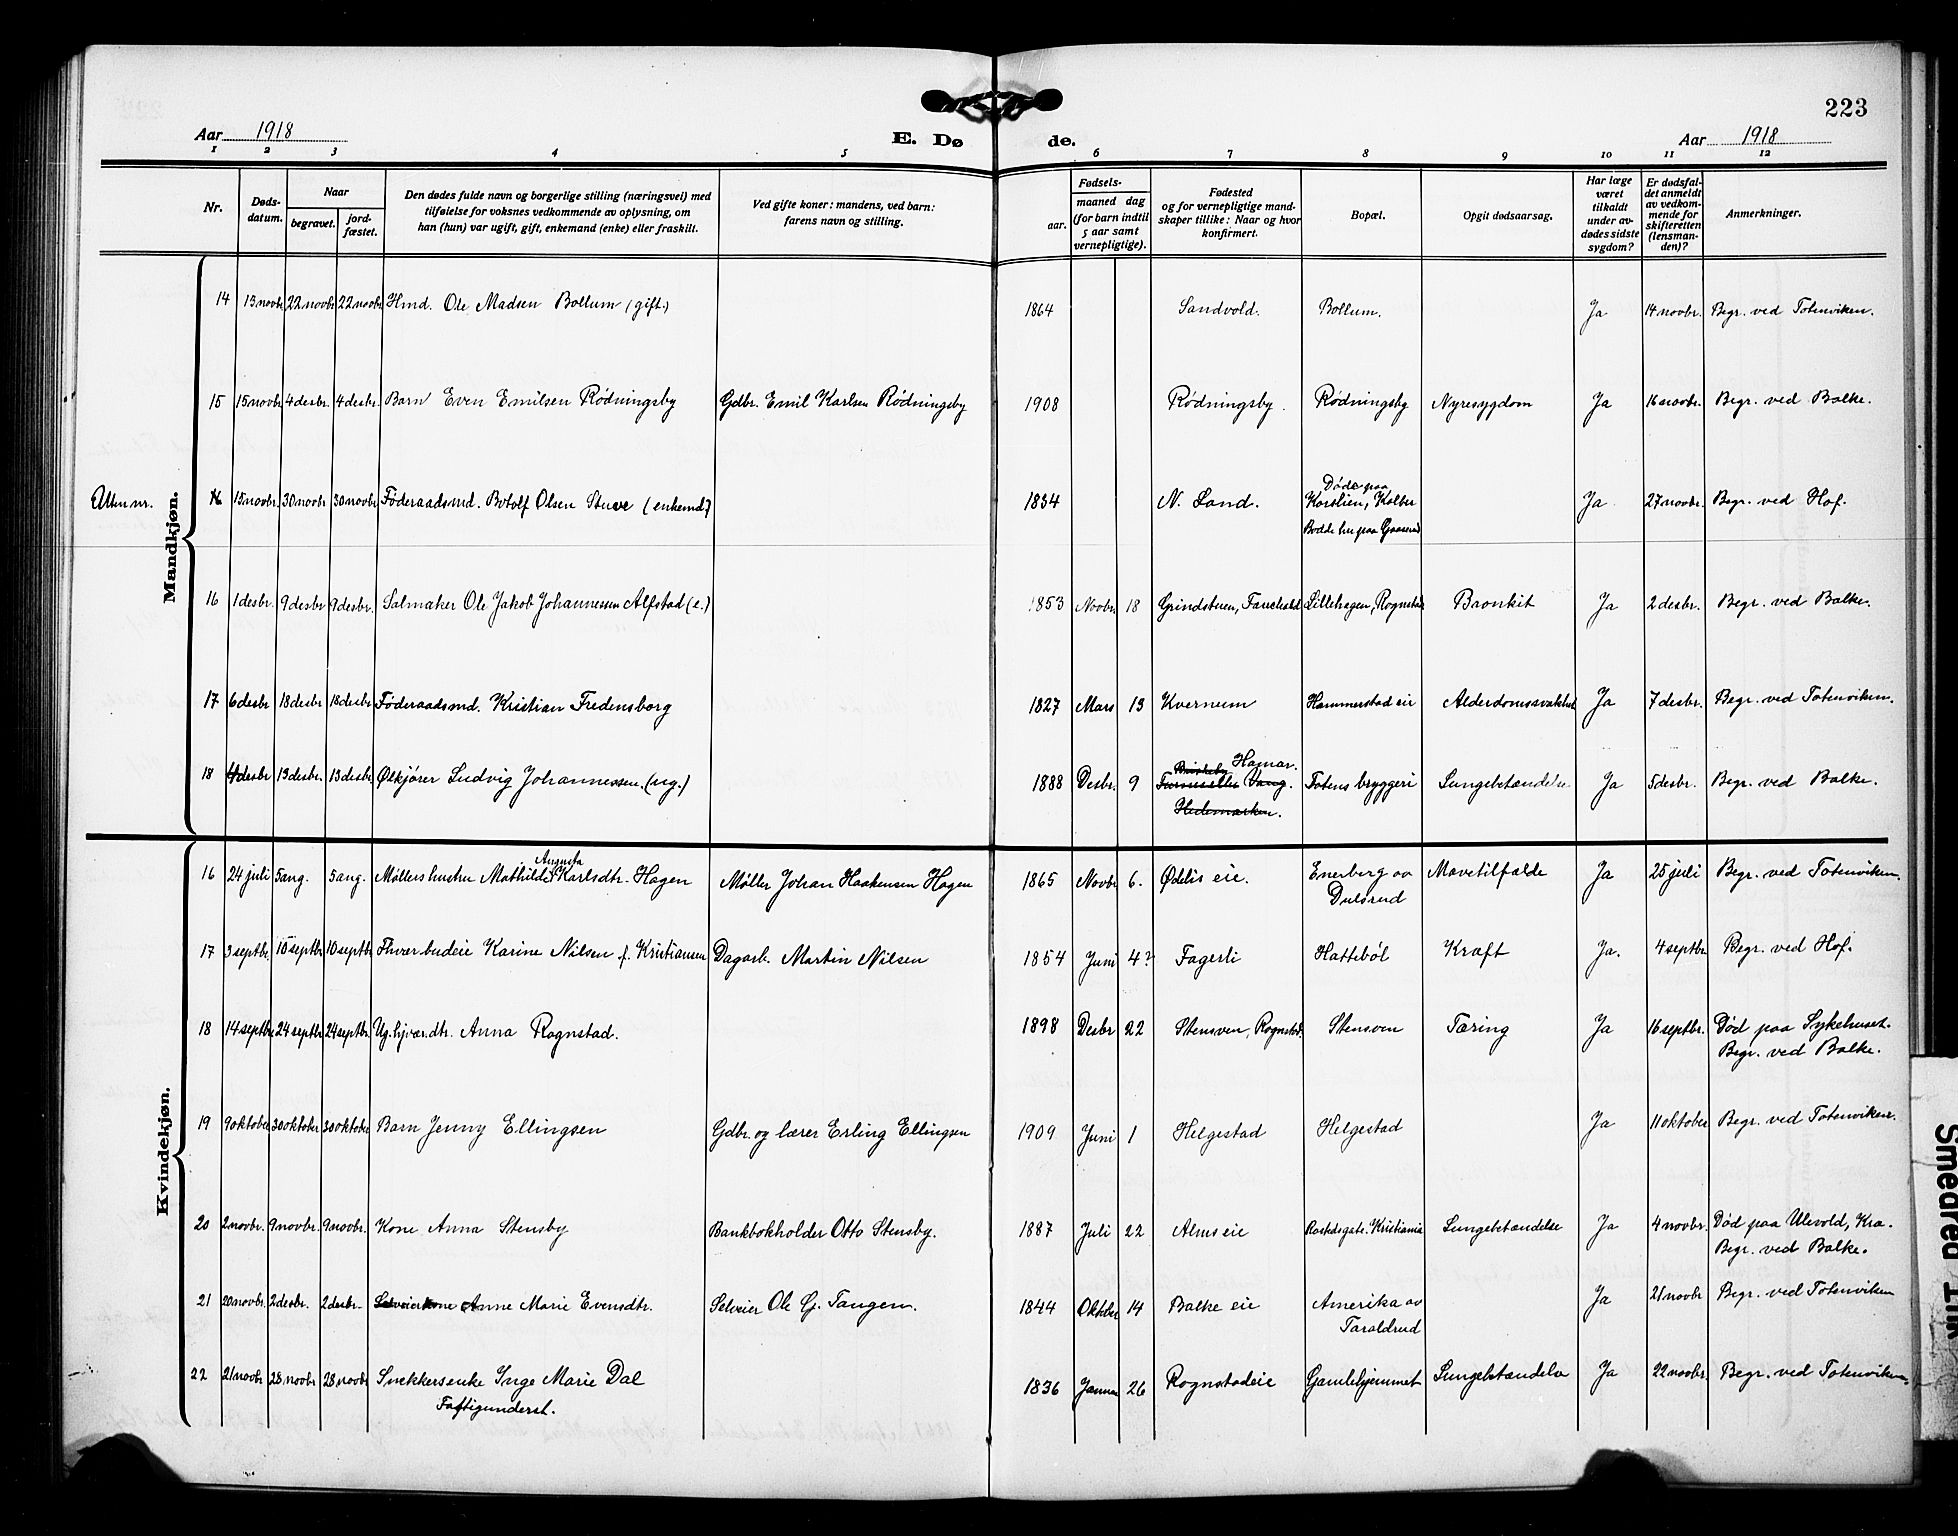 223
Aar 1918 E. Dø de. Aar 1918
1 2 3 4 5 6 7 8 9 10 11 12
Nr. Døds-datum. Naar begravet. jord-fæstet. Den dødes fulde navn og borgerlige stilling (næringsvei) med tilføielse for voksnes vedkommende av oplysning, om han (hun) var ugift, gift, enkemand (enke) eller fraskilt. Ved gifte koner: mandens, ved barn: farens navn og stilling. Fødsels- aar. maaned dag (for barn indtil 5 aar samt vernepligtige). Fødested og for vernepligtige mand-skaper tillike: Naar og hvor konfirmert. Bopæl. Opgit dødsaarsag. Har læge været tilkaldt under av-dødes sidste sygdom? Er dødsfal-det anmeldt av vedkom-mende for skifteretten (lensman-den)? Anmerkninger.
Mandkjøn.
14 13 novbr 22 novbr 22 novbr Hmd. Ole Madsen Bollum (gift.) 1864 Sandvold. Bollum. Ja 14 novbr. Begr. ved Totenviken.
15 15 novbr 4 desbr. 4 desbr. Barn Even Emilsen Rødningsby Gdbr. Emil Karlsen Rødningsby 1908 Rødningsby. Rødningsby Nyresygdom Ja 16 novbr. Begr. ved Balke.
Uten nr. 15 novbr 30 novbr 30 novbr Føderaadsmd. Botolf Olsen Stuve (enkemd.) 1834 N. Land. Døde paa Korslien, Kolbu Ja 27 novbr. Begr. ved Hof.
16 1 desbr. 9 desbr 9 desbr. Salmaker Ole Jakob Johannessen Alfstad (e.) 1853 Novbr. 18 Grindstuen, Fauchald Lillehagen, Rognstad Bronkit Ja 2 desbr. Begr. ved Balke.
17 6 desbr 18 desbr 18 desbr Føderaadsmd. Kristian Fredensborg 1827 Mars 13 Kvernum Hammerstad eie Alderdomssvakhet Ja 7 desbr. Begr. ved Totenviken.
18 4 desbr 13 desbr. 13 desbr Ølkjører Ludvig Johannessen. (ug.) 1888 Desbr. 9 Hamar. Vang. Hedemarken. Totens bryggeri Lungebetændelse Ja 5 desbr. Begr. ved Balke.
Kvindekjøn.
16 24 juli 5 aug. 5 aug. Møllershustru Mathilde Augusta Karlsdtr. Hagen Møller Johan Haakensen Hagen 1865 Novbr 6. Ødelis eie. Enerberg av Dulsrud Mavetilfælde Ja 25 juli Begr. ved Totenviken.
17 3 septbr. 10 septbr 10 septbr Karine Nilsen f. Kristiansen Dagarb. Martin Nilsen 1854 Juni 4? Fagerli Hattebøl Kræft Ja. 4 septbr Begr. ved Hof.
18 14 septbr 24 septbr 24 septbr. Ug. gjær.dtr. Anna Rognstad. 1898 Desbr 22 Stensven, Rognstad. Stensven Tæring Ja 16 septbr. Død paa Sykehuset.
Begr. ved Balke.
19 9 oktober 30 oktober 30 oktober Barn Jenny Ellingsen Gdbr. og lærer Erling Ellingsen 1909 Juni 1 Helgestad Helgestad Ja 11 oktober Begr. ved Totenviken.
20 2 novbr. 9 novbr. 9 novbr. Kone Anna Stensby Bankbokholder Otto Stensby. 1887 Juli 22 Alms eie Kristiania Lungebetændelse Ja 4 novbr. Død paa Ulevold, Kra.
Begr. ved Balke.
21 20 novbr. 2 desbr. 2 desbr. Selveierkone Anne Marie Evensdtr. Selveier Ole G. Tangen. 1844 Oktober 14 Balke eie Amerika av Taraldrud Ja 21 novbr Begr. ved Totenviken
22 21 novbr 28 novbr 28 novbr Snekkersenke Inge Marie Dal 1836 Januar 26 Rognstadeie Gamlehjemmet Lungebetændelse Ja 22 novbr. Begr. ved Totenviken.
Fattigunderst.
Smeared Ink